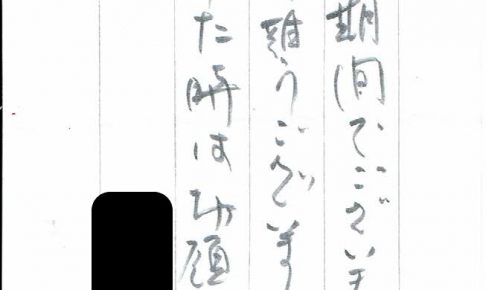 期間でござい
難うございます
た時はお願